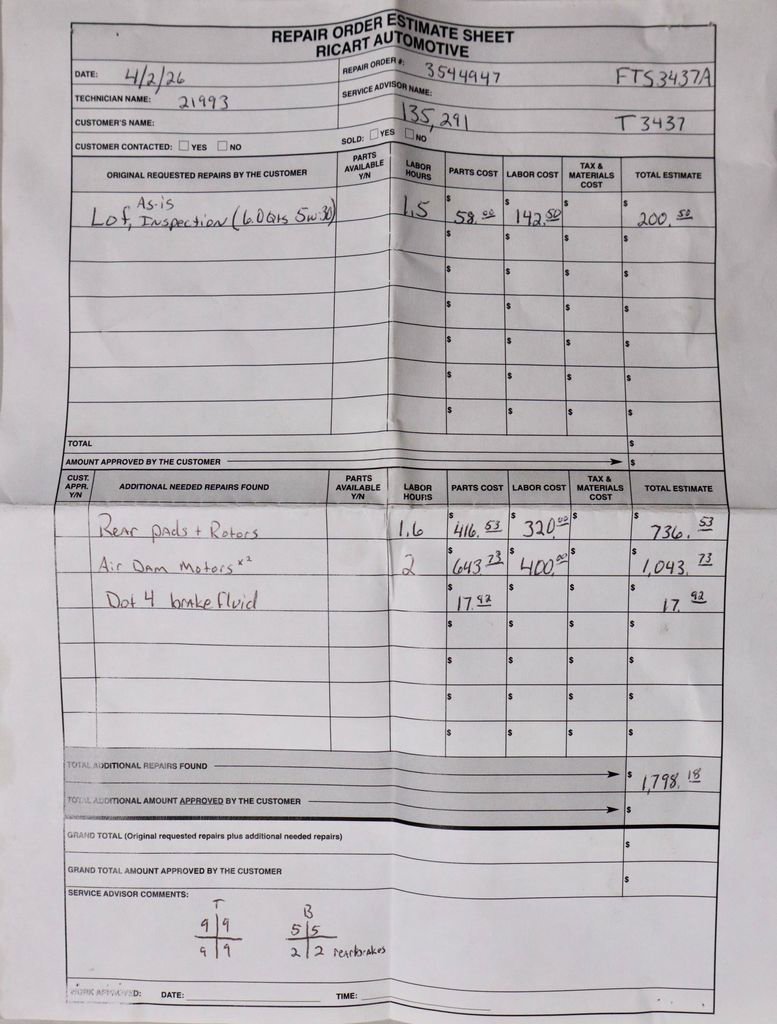 REPAIR ORDER ESTIMATE SHEET
RICART AUTOMOTIVE
DATE: 4/2/26
REPAIR ORDER #: 3544947 FTS3437A
TECHNICIAN NAME: 21993
SERVICE ADVISOR NAME:
CUSTOMER'S NAME:
135,291 T3437
CUSTOMER CONTACTED: YES NO
SOLD: YES NO
ORIGINAL REQUESTED REPAIRS BY THE CUSTOMER PARTS AVAILABLE Y/N LABOR HOURS PARTS COST LABOR COST TAX & MATERIALS COST TOTAL ESTIMATE
As-is
Lof, Inspection (6.0 Qts 5w-30) 1.5 $ 58.00 $ 142.50 $ $ 200.50
$ $ $ $
$ $ $ $
$ $ $ $
$ $ $ $
$ $ $ $
$ $ $ $
TOTAL $
AMOUNT APPROVED BY THE CUSTOMER $
CUST. APPR. Y/N ADDITIONAL NEEDED REPAIRS FOUND PARTS AVAILABLE Y/N LABOR HOURS PARTS COST LABOR COST TAX & MATERIALS COST TOTAL ESTIMATE
Rear pads + Rotors 1.6 $ 416.53 $ 320.00 $ $ 736.53
Air Dam Motors x2 2 $ 643.73 $ 400.00 $ $ 1,043.73
Dot 4 brake fluid $ 17.92 $ $ $ 17.92
$ $ $ $
$ $ $ $
$ $ $ $
$ $ $ $
TOTAL ADDITIONAL REPAIRS FOUND $ 1,798.18
TOTAL ADDITIONAL AMOUNT APPROVED BY THE CUSTOMER $
GRAND TOTAL (Original requested repairs plus additional needed repairs) $
GRAND TOTAL AMOUNT APPROVED BY THE CUSTOMER $
SERVICE ADVISOR COMMENTS:
T B
9 9 5 5
9 9 2 2 rear brakes
WORK APPROVED: DATE: TIME: